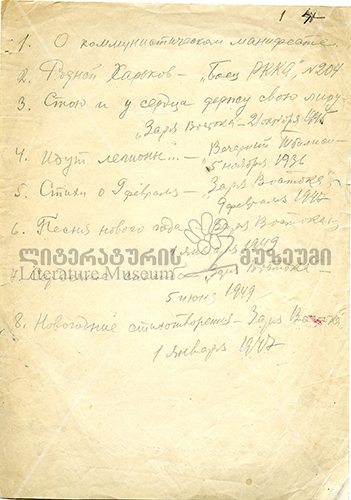 1
1. О коммунистическом манифесте.
2. Родной Харьков – „Боец РККА", №204
3. Стою и у сердца держу свою лиру –
„Заря Востока" – 21 ноября
4. Идут легионы!.. – „Вечерний Тбилиси –
5 ноября 1936
5. Стихи о Феврале – „Заря Востока"
февраля
6. Песня нового года – „Заря Востока"
ლიტერატურის მუზეუმი
1 января 1949
Literature Museum
7. – „Заря Востока" –
5 июня 1949
8. Новогоднее стихотворение – Заря Востока
1 января 1947